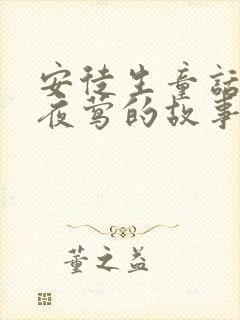 安徒生童话
夜莺的故事
董之益